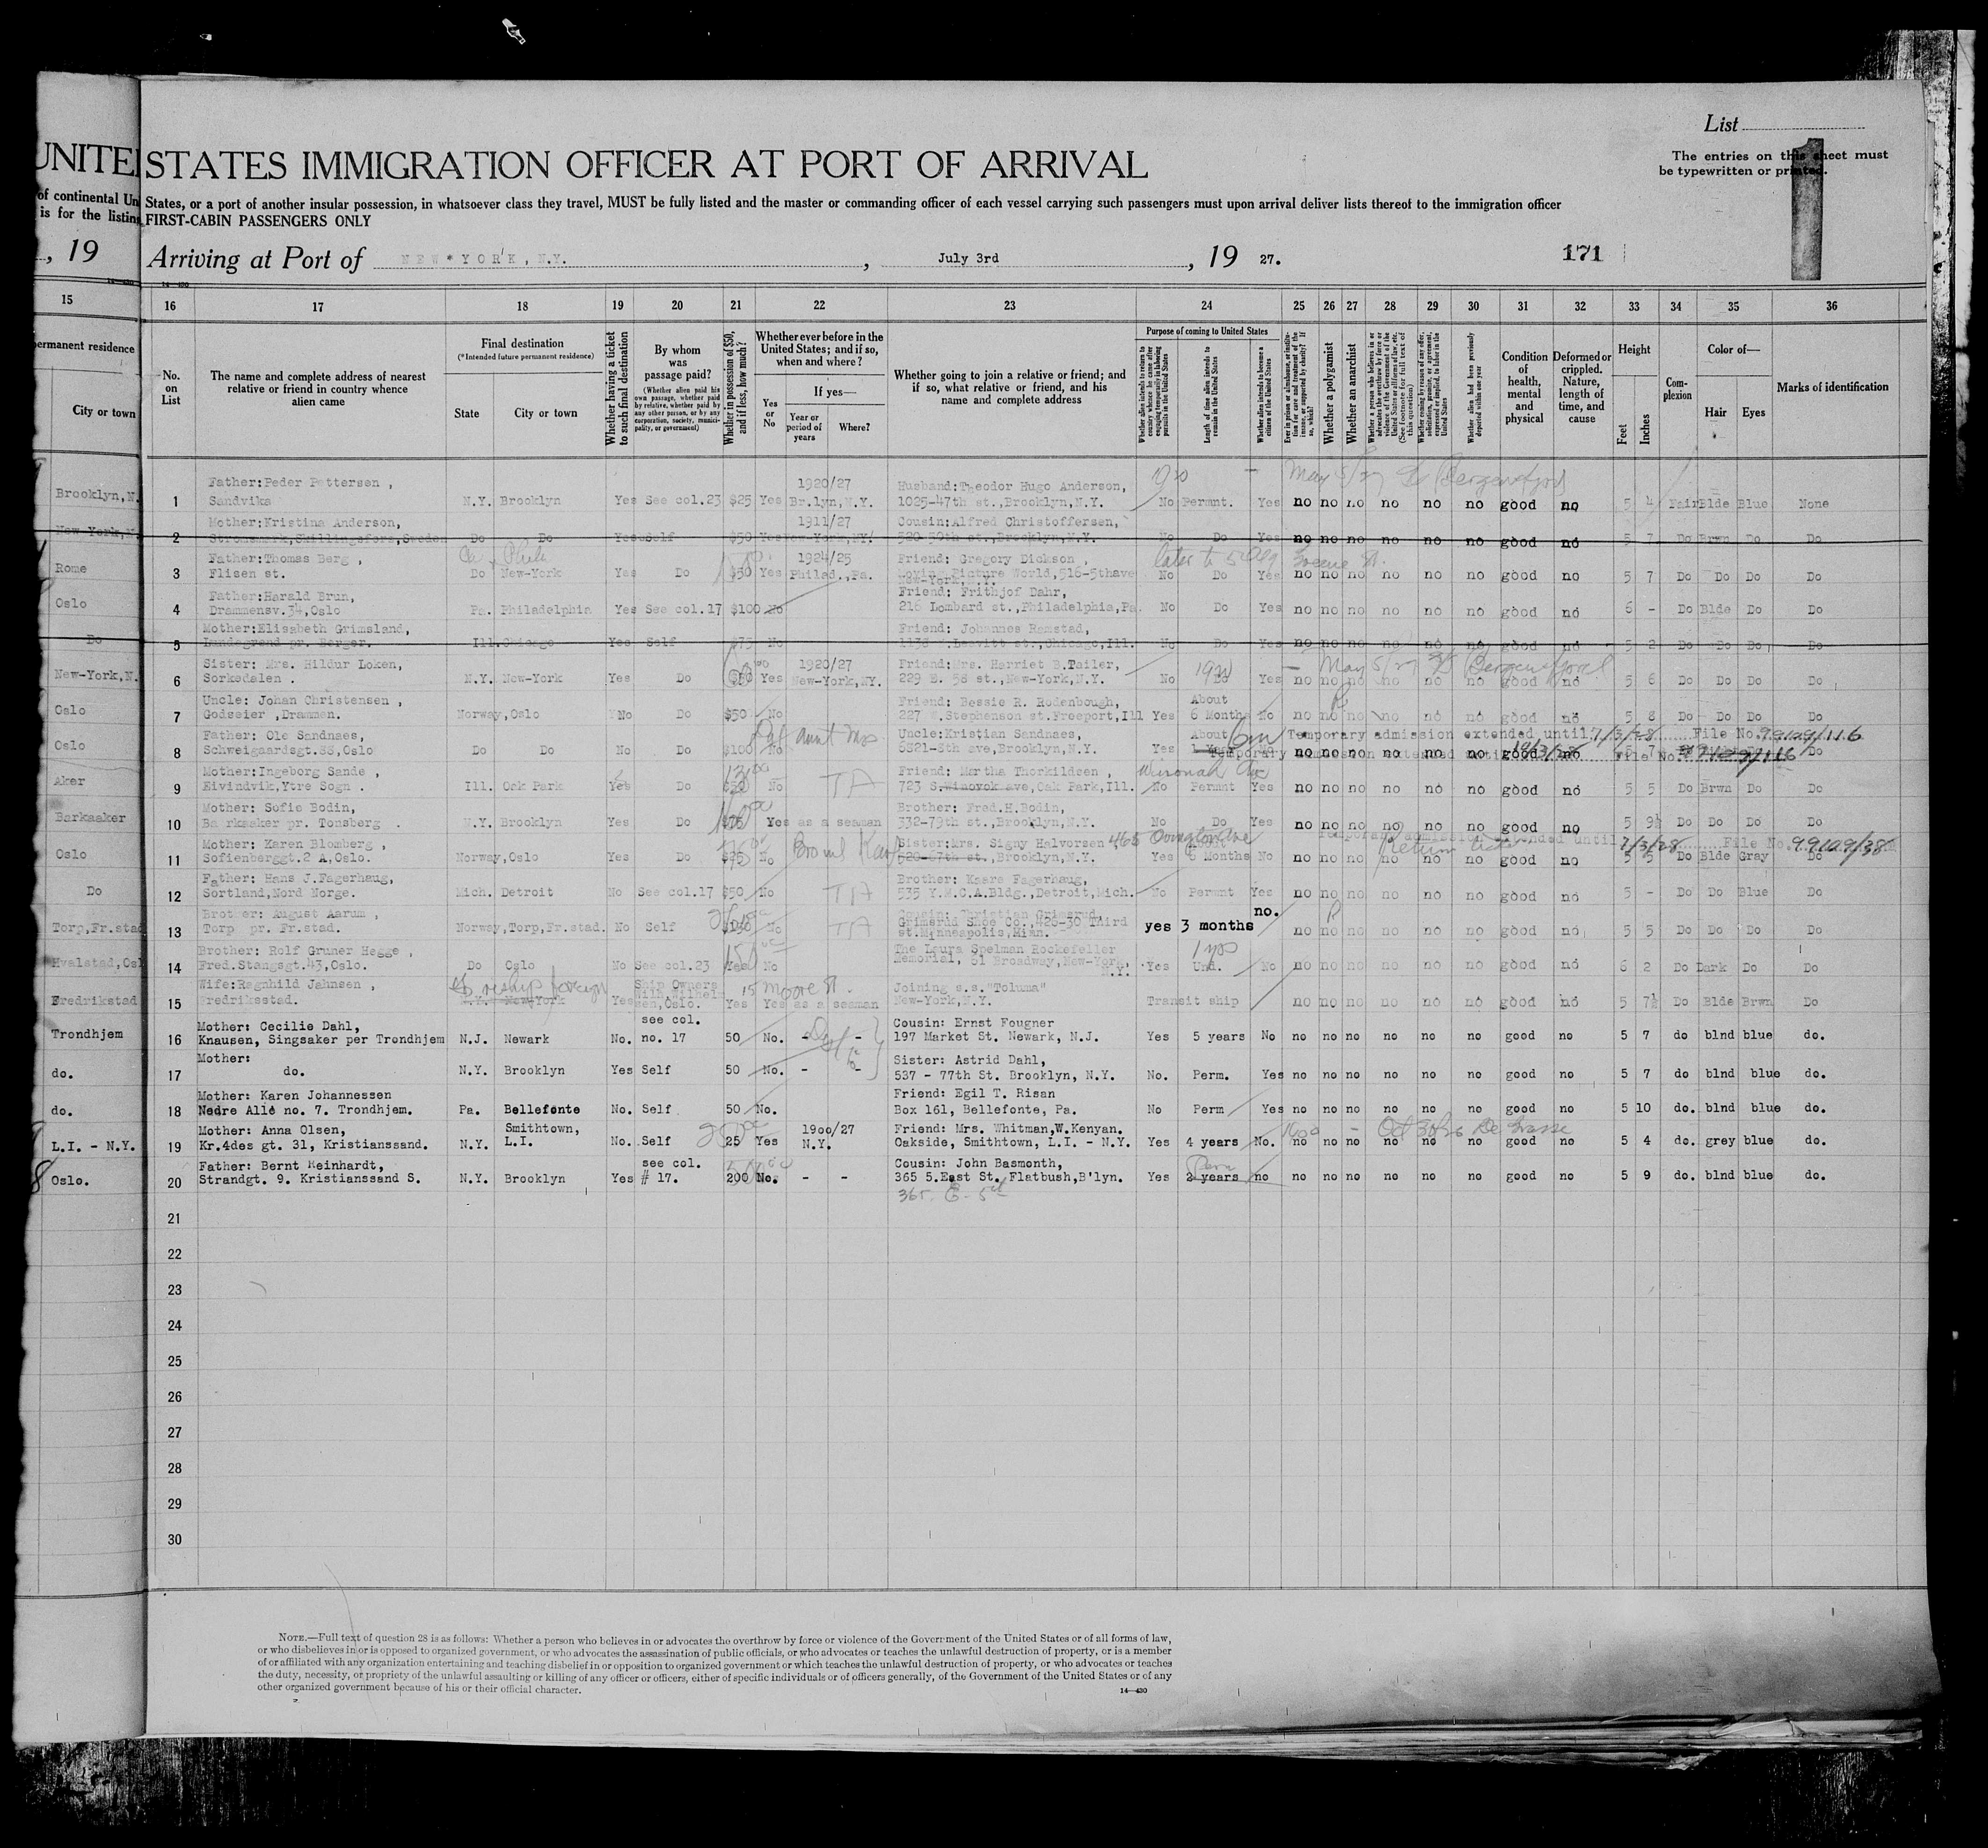 List
The entries on this sheet must
be typewritten or printed.
1
UNITE STATES IMMIGRATION OFFICER AT PORT OF ARRIVAL
of continental Un States, or a port of another insular possession, in whatsoever class they travel, MUST be fully listed and the master or commanding officer of each vessel carrying such passengers must upon arrival deliver lists thereof to the immigration officer
is for the listing FIRST-CABIN PASSENGERS ONLY
, 19 Arriving at Port of NEW*YORK, N.Y. , July 3rd , 19 27. 171
14—430
15 16 17 18 19 20 21 22 23 24 25 26 27 28 29 30 31 32 33 34 35 36
permanent residence
City or town
No. on List
The name and complete address of nearest relative or friend in country whence alien came
Final destination
(*Intended future permanent residence)
State City or town
Whether having a ticket to such final destination
By whom was passage paid?
(Whether alien paid his own passage, whether paid by relative, whether paid by any other person, or by any corporation, society, municipality, or government)
Whether in possession of $50, and if less, how much?
Whether ever before in the United States; and if so, when and where?
Yes or No
If yes—
Year or period of years Where?
Whether going to join a relative or friend; and if so, what relative or friend, and his name and complete address
Purpose of coming to United States
Whether alien intends to return to country whence he came after engaging temporarily in laboring pursuits in the United States
Length of time alien intends to remain in the United States
Whether alien intends to become a citizen of the United States
Whether a polygamist
Whether an anarchist
Whether alien had been previously deported within one year
Condition of health, mental and physical
Deformed or crippled. Nature, length of time, and cause
Height
Feet Inches
Complexion
Color of—
Hair Eyes
Marks of identification
Father:Peder Pettersen , 1920/27 Husband:Theodor Hugo Anderson,
Brooklyn,N. 1 Sandvika N.Y. Brooklyn Yes See col.23 $25 Yes Br.lyn,N.Y. 1025-47th st.,Brooklyn,N.Y. No Permnt. Yes no no no no no no good no 5 4 Fair Blde Blue None
May 5/27 Bergensfjord
Mother:Kristina Anderson, 1911/27 Cousin:Alfred Christoffersen,
New-York,N. 2 Stromsmark,Skillingsfors,Sweden Do Do Yes Self $50 Yes New-York,NY. 520-50th st.,Brooklyn,N.Y. No Do Yes no no no no no no good no 5 7 Do Brwn Do Do
Father:Thomas Berg , 1924/25 Friend: Gregory Dickson ,
Rome 3 Flisen st. Do New-York Yes Do $50 Yes Philad.,Pa. Picture World,516-5thave No Do Yes no no no no no no good no 5 7 Do Do Do Do
Father:Harald Brun, Friend: Frithjof Dahr,
Oslo 4 Drammensv.34,Oslo Pa. Philadelphia Yes See col.17 $100 No 216 Lombard st.,Philadelphia,Pa. No Do Yes no no no no no no good no 6 - Do Blde Do Do
Mother:Elisabeth Grimsland, Friend: Johannes Ramstad,
Do 5 Lundegrend pr. Berger. Ill. Chicago Yes Self $75 No 1138 Leavitt st.,Chicago,Ill. No Do Yes no no no no no no good no 5 2 Do Do Do Do
Sister: Mrs. Hildur Loken, 1920/27 Friend:Mrs. Harriet B.Tailer,
New-York,N. 6 Sorkedalen . N.Y. New-York Yes Do Yes New-York,NY. 229 E. 58 st.,New-York,N.Y. No Do Yes no no no no no no good no 5 6 Do Do Do Do
May 5/27 Bergensfjord
Uncle: Johan Christensen , Friend: Bessie R. Rodenbough, About
Oslo 7 Godseier ,Drammen. Norway,Oslo No Do $50 No 227 W.Stephenson st.Freeport,Ill Yes 6 Months No no no no no no no good no 5 8 Do Do Do Do
Father: Ole Sandnaes, Uncle:Kristian Sandnaes, About 6m Temporary admission extended until 7/3/28 File No. 99129/116
Oslo 8 Schweigaardsgt.88,Oslo Do Do No Do $100 No 5521-8th ave,Brooklyn,N.Y. Yes 1 Year No no no no no no no good no 5 7 Do
Temporary admission extended until File No. 99129/116
Mother:Ingeborg Sande , Friend: Martha Thorkildsen ,
Aker 9 Eivindvik,Ytre Sogn . Ill. Oak Park Yes Do $50 No TA 723 S.Winovok ave,Oak Park,Ill. No Permnt Yes no no no no no no good no 5 5 Do Brwn Do Do
Mother: Sofie Bodin, Brother: Fred.H.Bodin,
Barkaaker 10 Ba rkaaker pr. Tonsberg . N.Y. Brooklyn Yes Do $25 Yes as a seaman 332-79th st.,Brooklyn,N.Y. No Do Yes no no no no no no good no 5 9½ Do Do Do Do
Temporary admission extended until 7/3/28 File No. 99129/38
Mother: Karen Blomberg , Sister:Mrs. Signy Halvorsen 465 Ovington Ave
Oslo 11 Sofienberggt.2 A,Oslo. Norway,Oslo Yes Do $25 No 520-67th st.,Brooklyn,N.Y. Yes 6 Months No no no no no no no good no 5 5 Do Blde Gray Do
Father: Hans J.Fagerhaug, Brother: Kaare Fagerhaug,
Do 12 Sortland,Nord Norge. Mich. Detroit No See col.17 $50 No TA 535 Y.M.C.A.Bldg.,Detroit,Mich. No Permnt Yes no no no no no no good no 5 - Do Do Blue Do
Brother: August Aarum , Cousin: Christian Grimsrud, no.
Torp,Fr.stad 13 Torp pr. Fr.stad. Norway,Torp,Fr.stad. No Self No TA Grimsrud Shoe Co.,428-30 Third st.Minneapolis,Minn. yes 3 months no no no no no no good no 5 5 Do Do Do Do
Brother: Rolf Gruner Hegge , The Laura Spelman Rockefeller
Hvalstad,Osl 14 Fred.Stangsgt.43,Oslo. Do Oslo No See col.23 Yes No Memorial, 61 Broadway,New-York, N.Y. Yes Und. No no no no no no no good no 6 2 Do Dark Do Do
Wife:Ragnhild Jahnsen , Ship Owners 15 Moore St. Joining s.s."Toluma"
Fredrikstad 15 Fredriksstad. N.Y. New York Yes Wilh.Wilhelmsen,Oslo. Yes Yes as a seaman New-York,N.Y. Transit ship no no no no no no good no 5 7½ Do Blde Brwn Do
Mother: Cecilie Dahl, see col. Cousin: Ernst Fougner
Trondhjem 16 Knausen, Singsaker per Trondhjem N.J. Newark No. no. 17 50 No. - - 197 Market St. Newark, N.J. Yes 5 years No no no no no no no good no 5 7 do blnd blue do.
Mother: Sister: Astrid Dahl,
do. 17 do. N.Y. Brooklyn Yes Self 50 No. - - 537 - 77th St. Brooklyn, N.Y. No. Perm. Yes no no no no no no good no 5 7 do blnd blue do.
Mother: Karen Johannessen Friend: Egil T. Risan
do. 18 Nedre Allé no. 7. Trondhjem. Pa. Bellefonte No. Self 50 No. Box 161, Bellefonte, Pa. No Perm Yes no no no no no no good no 5 10 do. blnd blue do.
Mother: Anna Olsen, Smithtown, 1900/27 Friend: Mrs. Whitman,W.Kenyan.
L.I. - N.Y. 19 Kr.4des gt. 31, Kristianssand. N.Y. L.I. No. Self 25 Yes N.Y. Oakside, Smithtown, L.I. - N.Y. Yes 4 years No. no no no no no no good no 5 4 do. grey blue do.
Oct 30/26 De Grasse
Father: Bernt Reinhardt, see col. Cousin: John Basmonth,
Oslo. 20 Strandgt. 9. Kristianssand S. N.Y. Brooklyn Yes # 17. 200 No. - - 365 5.East St. Flatbush,B'lyn. Yes 2 years no no no no no no no good no 5 9 do. blnd blue do.
365. E. 5th
21
22
23
24
25
26
27
28
29
30
NOTE.—Full text of question 28 is as follows: Whether a person who believes in or advocates the overthrow by force or violence of the Government of the United States or of all forms of law,
or who disbelieves in or is opposed to organized government, or who advocates the assassination of public officials, or who advocates or teaches the unlawful destruction of property, or is a member
of or affiliated with any organization entertaining and teaching disbelief in or opposition to organized government or which teaches the unlawful destruction of property, or who advocates or teaches
the duty, necessity, or propriety of the unlawful assaulting or killing of any officer or officers, either of specific individuals or of officers generally, of the Government of the United States or of any
other organized government because of his or their official character.
14—430